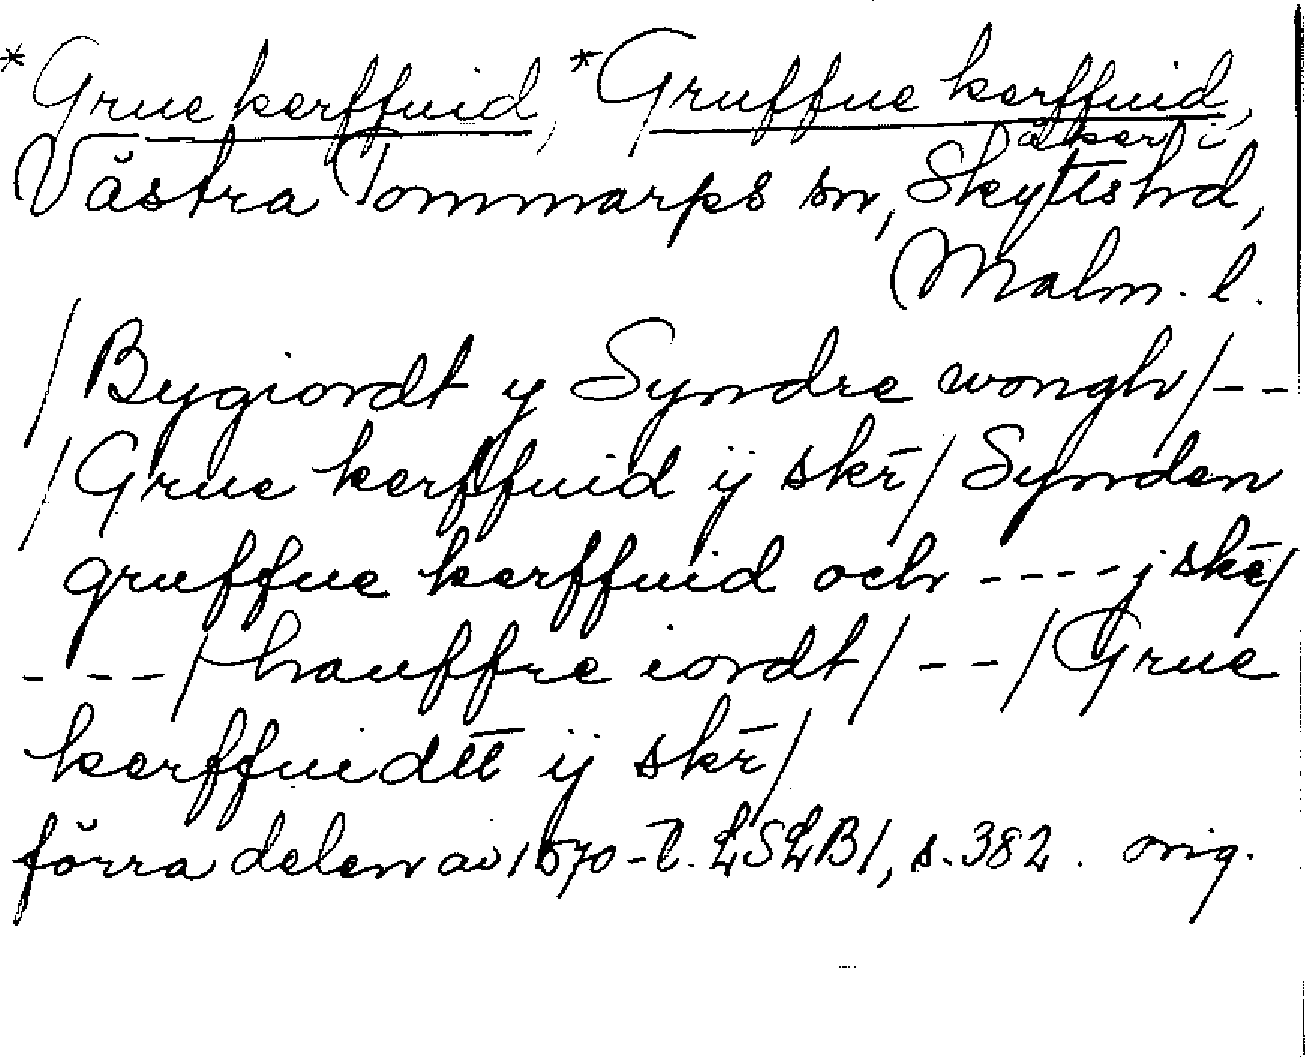 *Grue kerffuid, *Gruffue kerffuid,
åker i
Västra Tommarps sn, Skytts hd,
Malm. l.
/Bygiordt y Syndre wongh/--
/Grue kerffuid ij skr̄/ Synden
gruffue kerffuid och ----j skr̄/
---/hauffre iordt/--/Grue
kerffuidtt ij skr̄/
förra delen av 1570-t. LSLB1, s. 382. orig.